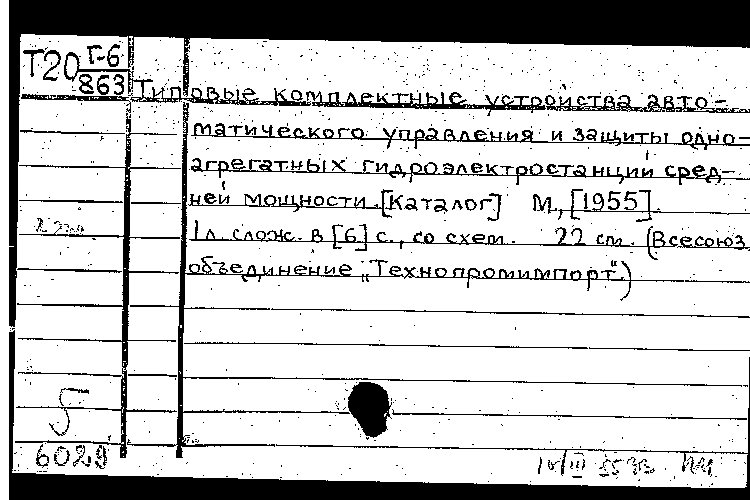 Т20 Г-6
863
Типовые комплектные устройства авто-
матического управления и защиты одно-
агрегатных гидроэлектростанций сред-
ней мощности. [Каталог] М., [1955].
1 л. слож. в [6] с., со схем. 22 см. (Всесоюз.
объединение „Технопромимпорт“)
5
6029